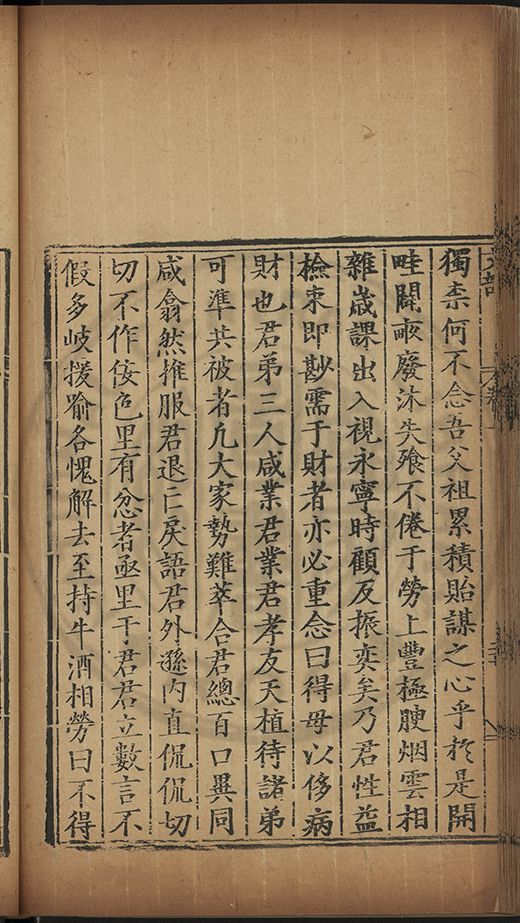 獨柰何不念吾父祖累積貽謀之心乎扵是開
畦闢畞廢沐失飱不倦于勞上豐極腴烟雲相
雜歲課出入視永寧時顧反振奕矣乃君性益
檢束即尠需于財者亦必重念曰得毋以侈病
財也君弟三人咸業君業君孝友天植待諸弟
可準共被者凢大家勢難萃合君緫百口異同
咸翕然推服君退仁戾語君外遜内直侃侃切
切不作佞色里有忿者亟里干君君立數言不
假多岐援喻各愧解去至持牛酒相勞曰不得